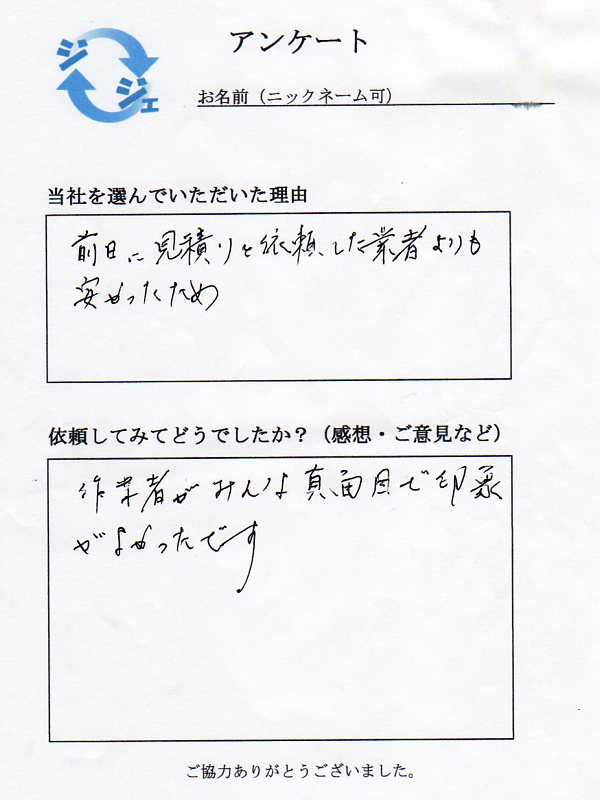 ジ
ジェ
アンケート
お名前（ニックネーム可）
当社を選んでいただいた理由
前日に見積りを依頼した業者よりも
安かったため
依頼してみてどうでしたか？（感想・ご意見など）
作業者がみんな真面目で印象
がよかったです
ご協力ありがとうございました。